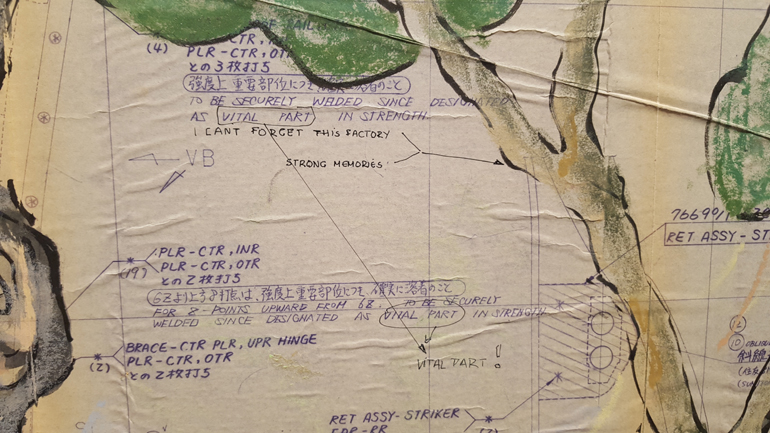 (4)
PLR-CTR, OTR
との3枚打5
強度上重要部位につき
TO BE SECURELY WELDED SINCE DESIGNATED
AS VITAL PART IN STRENGTH.
I CANT FORGET THIS FACTORY
STRONG MEMORIES
VB
76699/1
RET ASSY-ST
PLR-CTR, INR
(19) PLR-CTR, OTR
との2枚打5
6Zより上3打点は、強度上重要部位につき、確実に溶着のこと
FOR 8-POINTS UPWARD FROM 6Z, TO BE SECURELY
WELDED SINCE DESIGNATED AS VITAL PART IN STRENGTH
BRACE-CTR PLR, UPR HINGE
(2) PLR-CTR, OTR
との2枚打5
VITAL PART !
RET ASSY-STRIKER